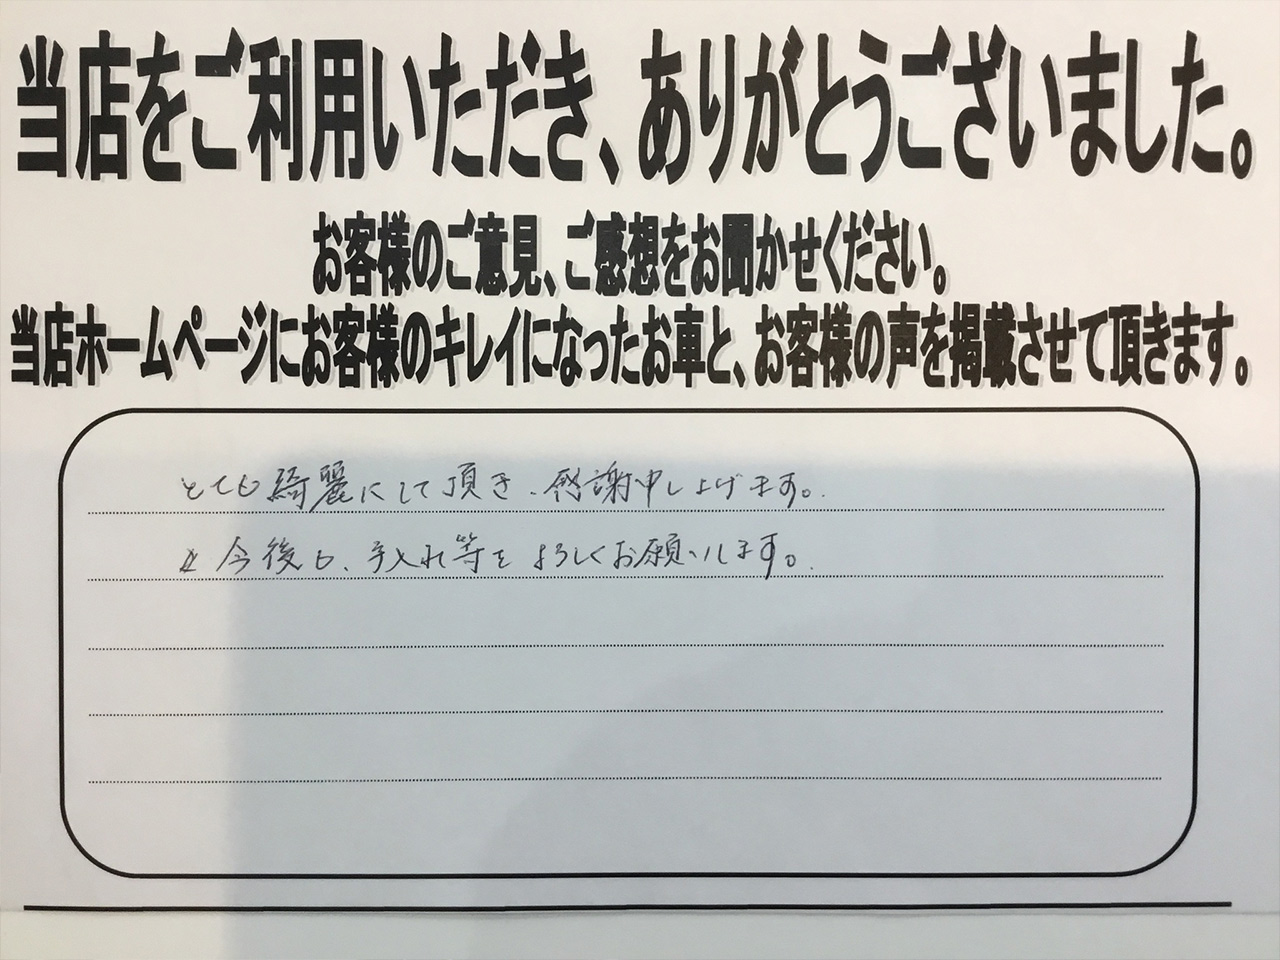 当店をご利用いただき、ありがとうございました。
お客様のご意見、ご感想をお聞かせください。
当店ホームページにお客様のキレイになったお車と、お客様の声を掲載させて頂きます。
とても綺麗にして頂き、感謝申し上げます。
今後も、手入れ等をよろしくお願いします。